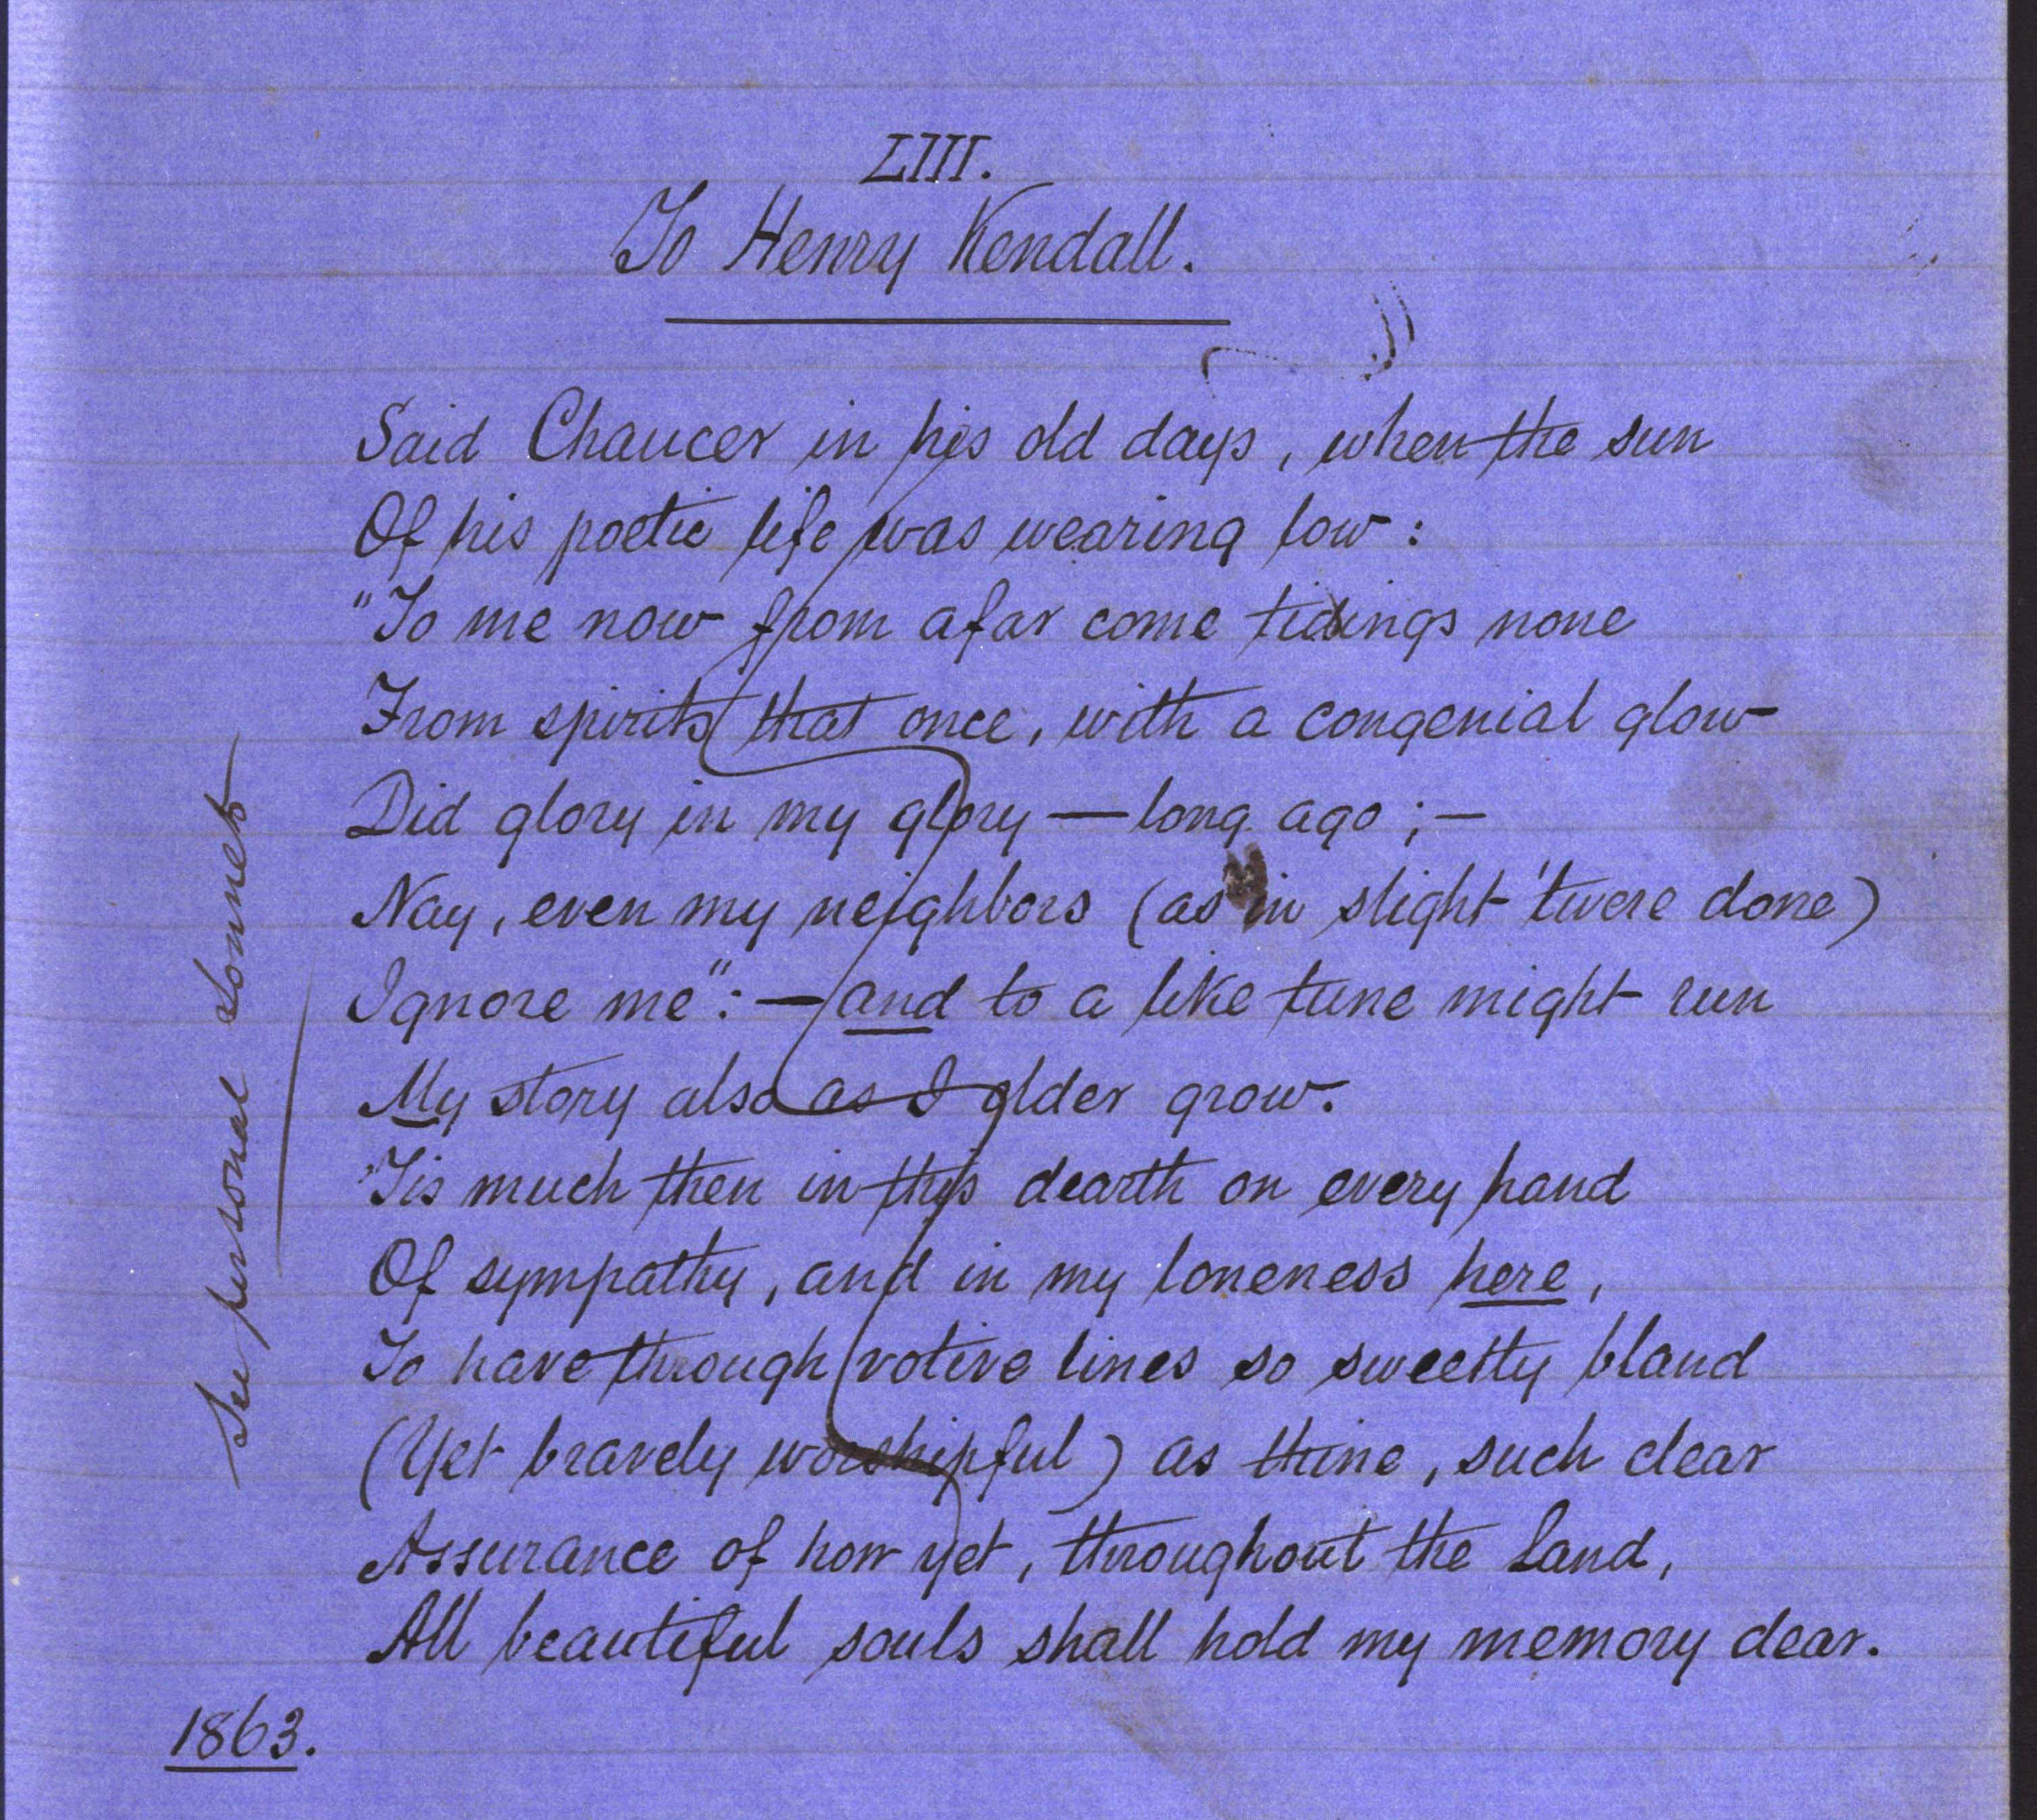 LIII.
To Henry Kendall.
Said Chaucer in his old days, when the sun
Of his poetic life was wearing low:
"To me now from afar come tidings none
From spirits that once, with a congenial glow
Did glory in my glory — long ago; —
Nay, even my neighbors (as in slight 'twere done)
Ignore me": — and to a like tune might run
My story also as I older grow.
'Tis much then in this dearth on every hand
Of sympathy, and in my loneness here,
To have through votive lines so sweetly bland
(Yet bravely worshipful) as thine, such clear
Assurance of how yet, throughout the Land,
All beautiful souls shall hold my memory dear.
1863.
See personal sonnets